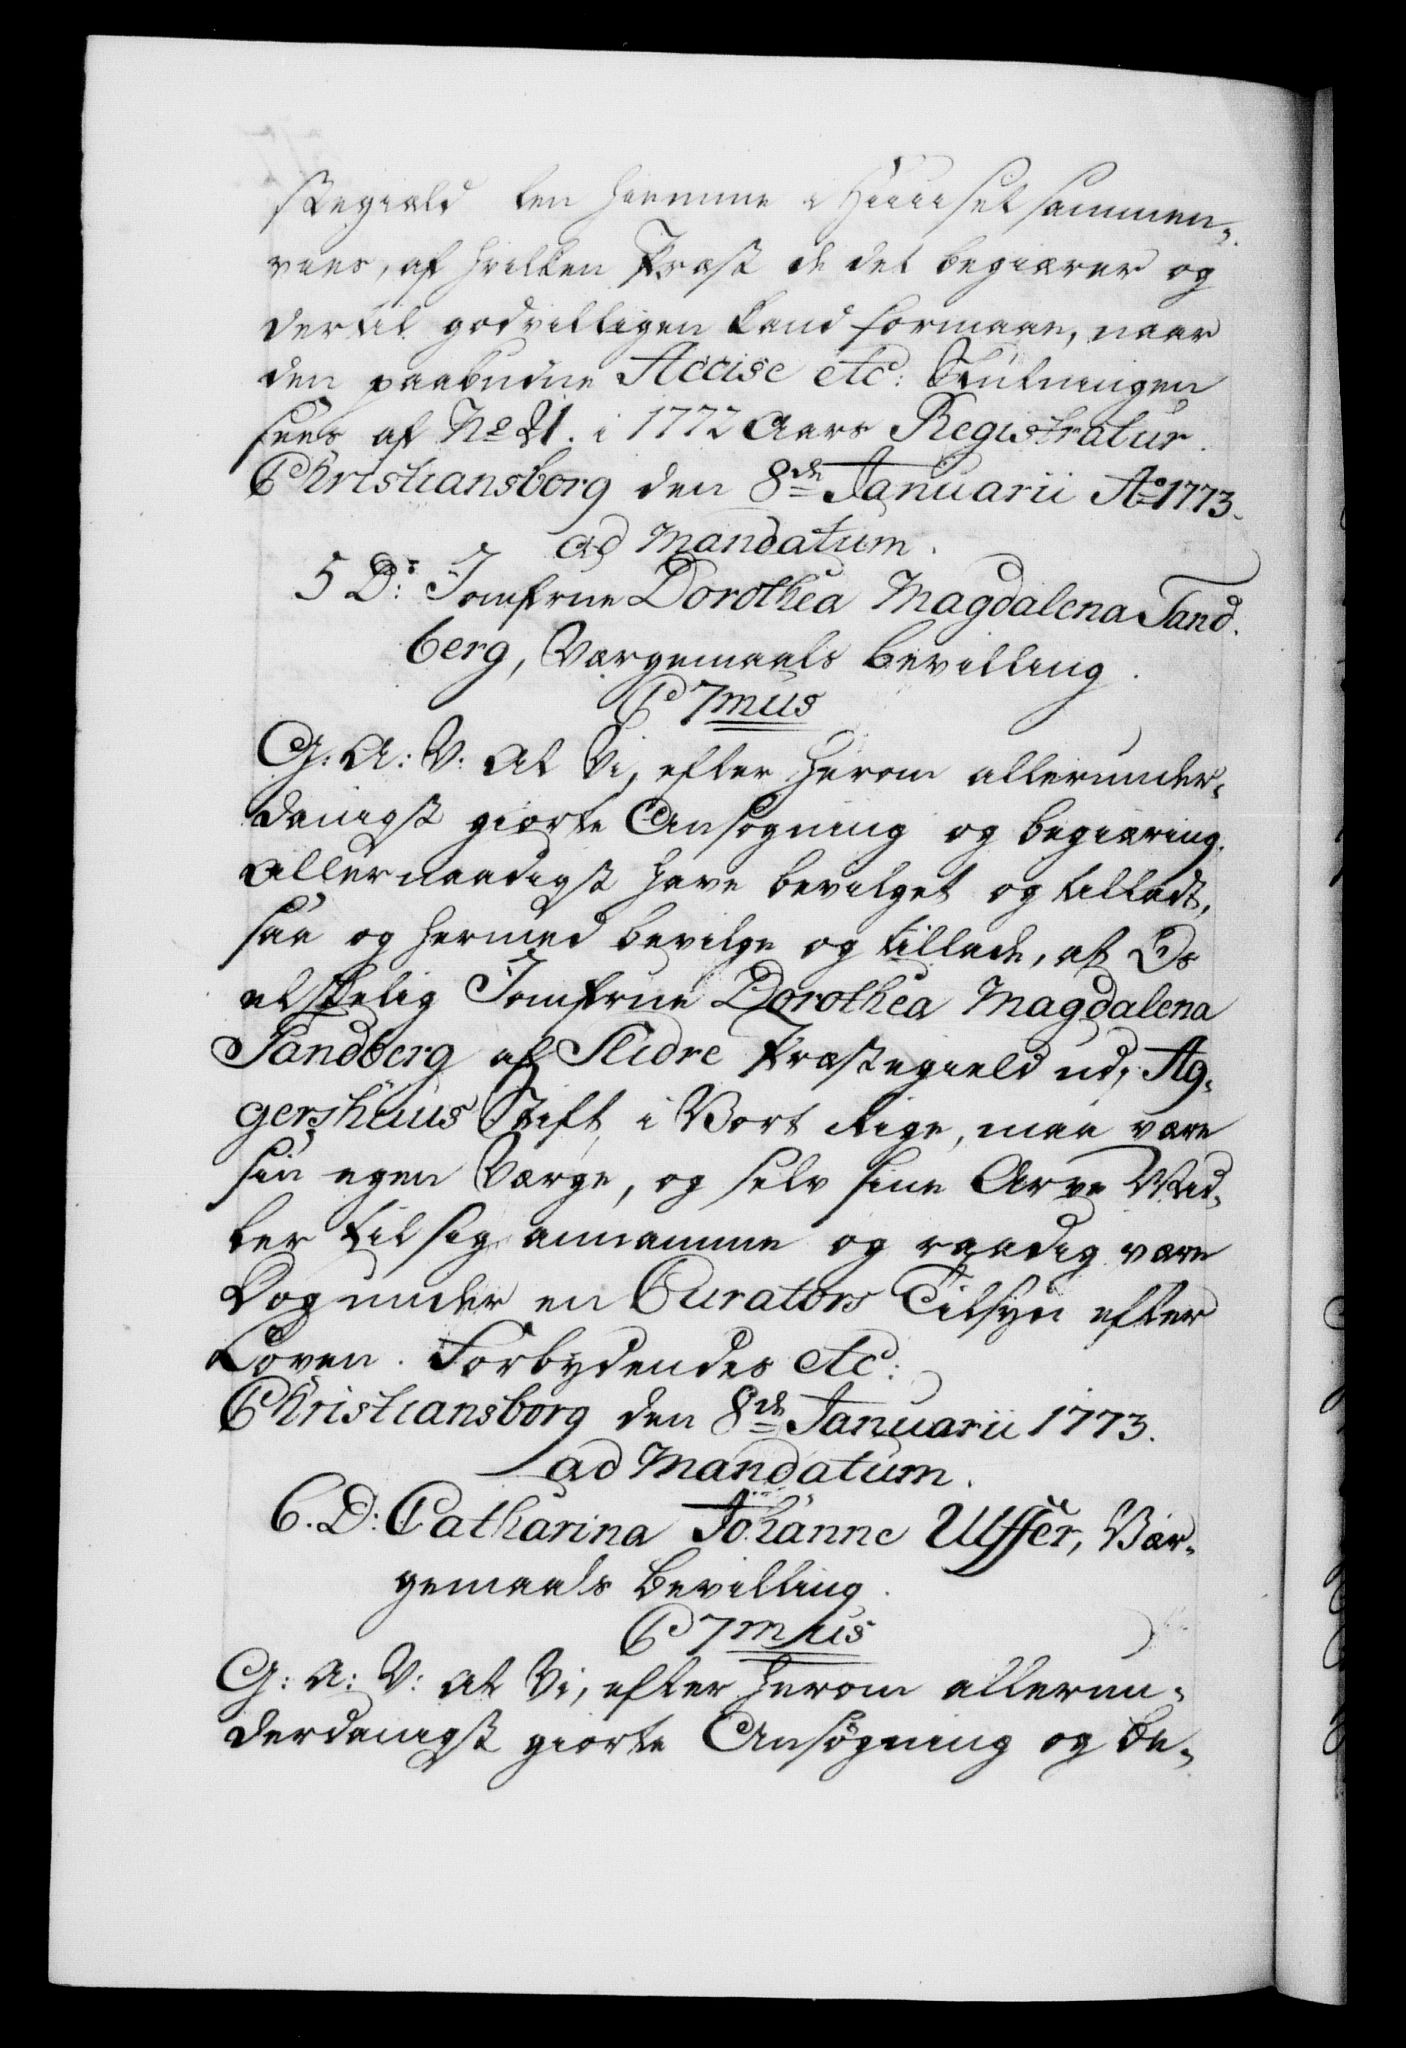 stegiæld den hiemme i Huuset sammen-
vies, af hvilken Præst de det begiærer og
dertil godvilligen kand formaae, naar
den paabudne Accise etc: Slutningen
sees af No 21. i 1772 Aars Registratur.
Christiansborg den 8de Januarii Ao 1773.
ad Mandatum.
5 D: Jomfrue Dorothea Magdalena Sand-
berg, Værgemaals Bevilling.
C 7mus
G: A: V: At Vi, efter herom allerunder-
danigst giorte Ansøgning og begiæring,
allernaadigst have bevilget og tilladt,
saa og hermed bevilge og tillade, at Os
elskelig Jomfrue Dorothea Magdalena
Sandberg af Slidre Præstegield udi Ag-
gershuus Stift i Vort Rige, maa være
sin egen Værge, og selv sine Arve Mid-
ler til sig annamme og raadig være
Dog under en Curators Tilsyn efter
Loven. Forbydendes etc:
Christiansborg den 8de Januarii 1773.
ad Mandatum.
6. D: Catharina Johanne Ulffer, Vær-
gemaals Bevilling.
C 7mus
G: A: V: At Vi, efter herom allerun-
derdanigst giorte Ansøgning og be-